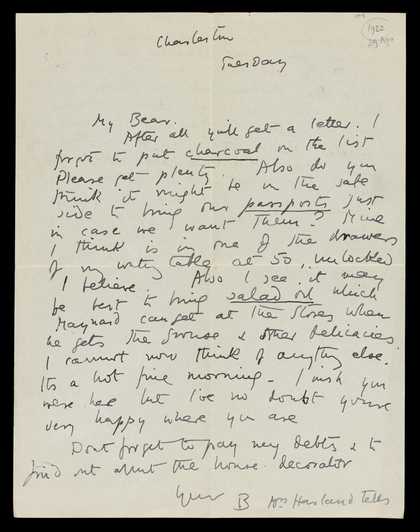 1922
29 Aug
Charleston
Tuesday
My Bear.
After all you'll get a letter. I
forgot to put charcoal on the list
Please get plenty. Also do you
think it might be on the safe
side to bring our passports just
in case we want them? Mine
I think is in one of the drawers
of my writing table at 50, unlocked
I believe. Also I see it may
be best to bring salad oil which
Maynard can get at the Stores when
he gets the grouse & other delicacies
I cannot now think of anything else.
Its a hot fine morning - I wish you
were here but I've no doubt you're
very happy where you are
Dont forget to pay my debts & to
find out about the house decorator
Your B
Mrs Harland Tells